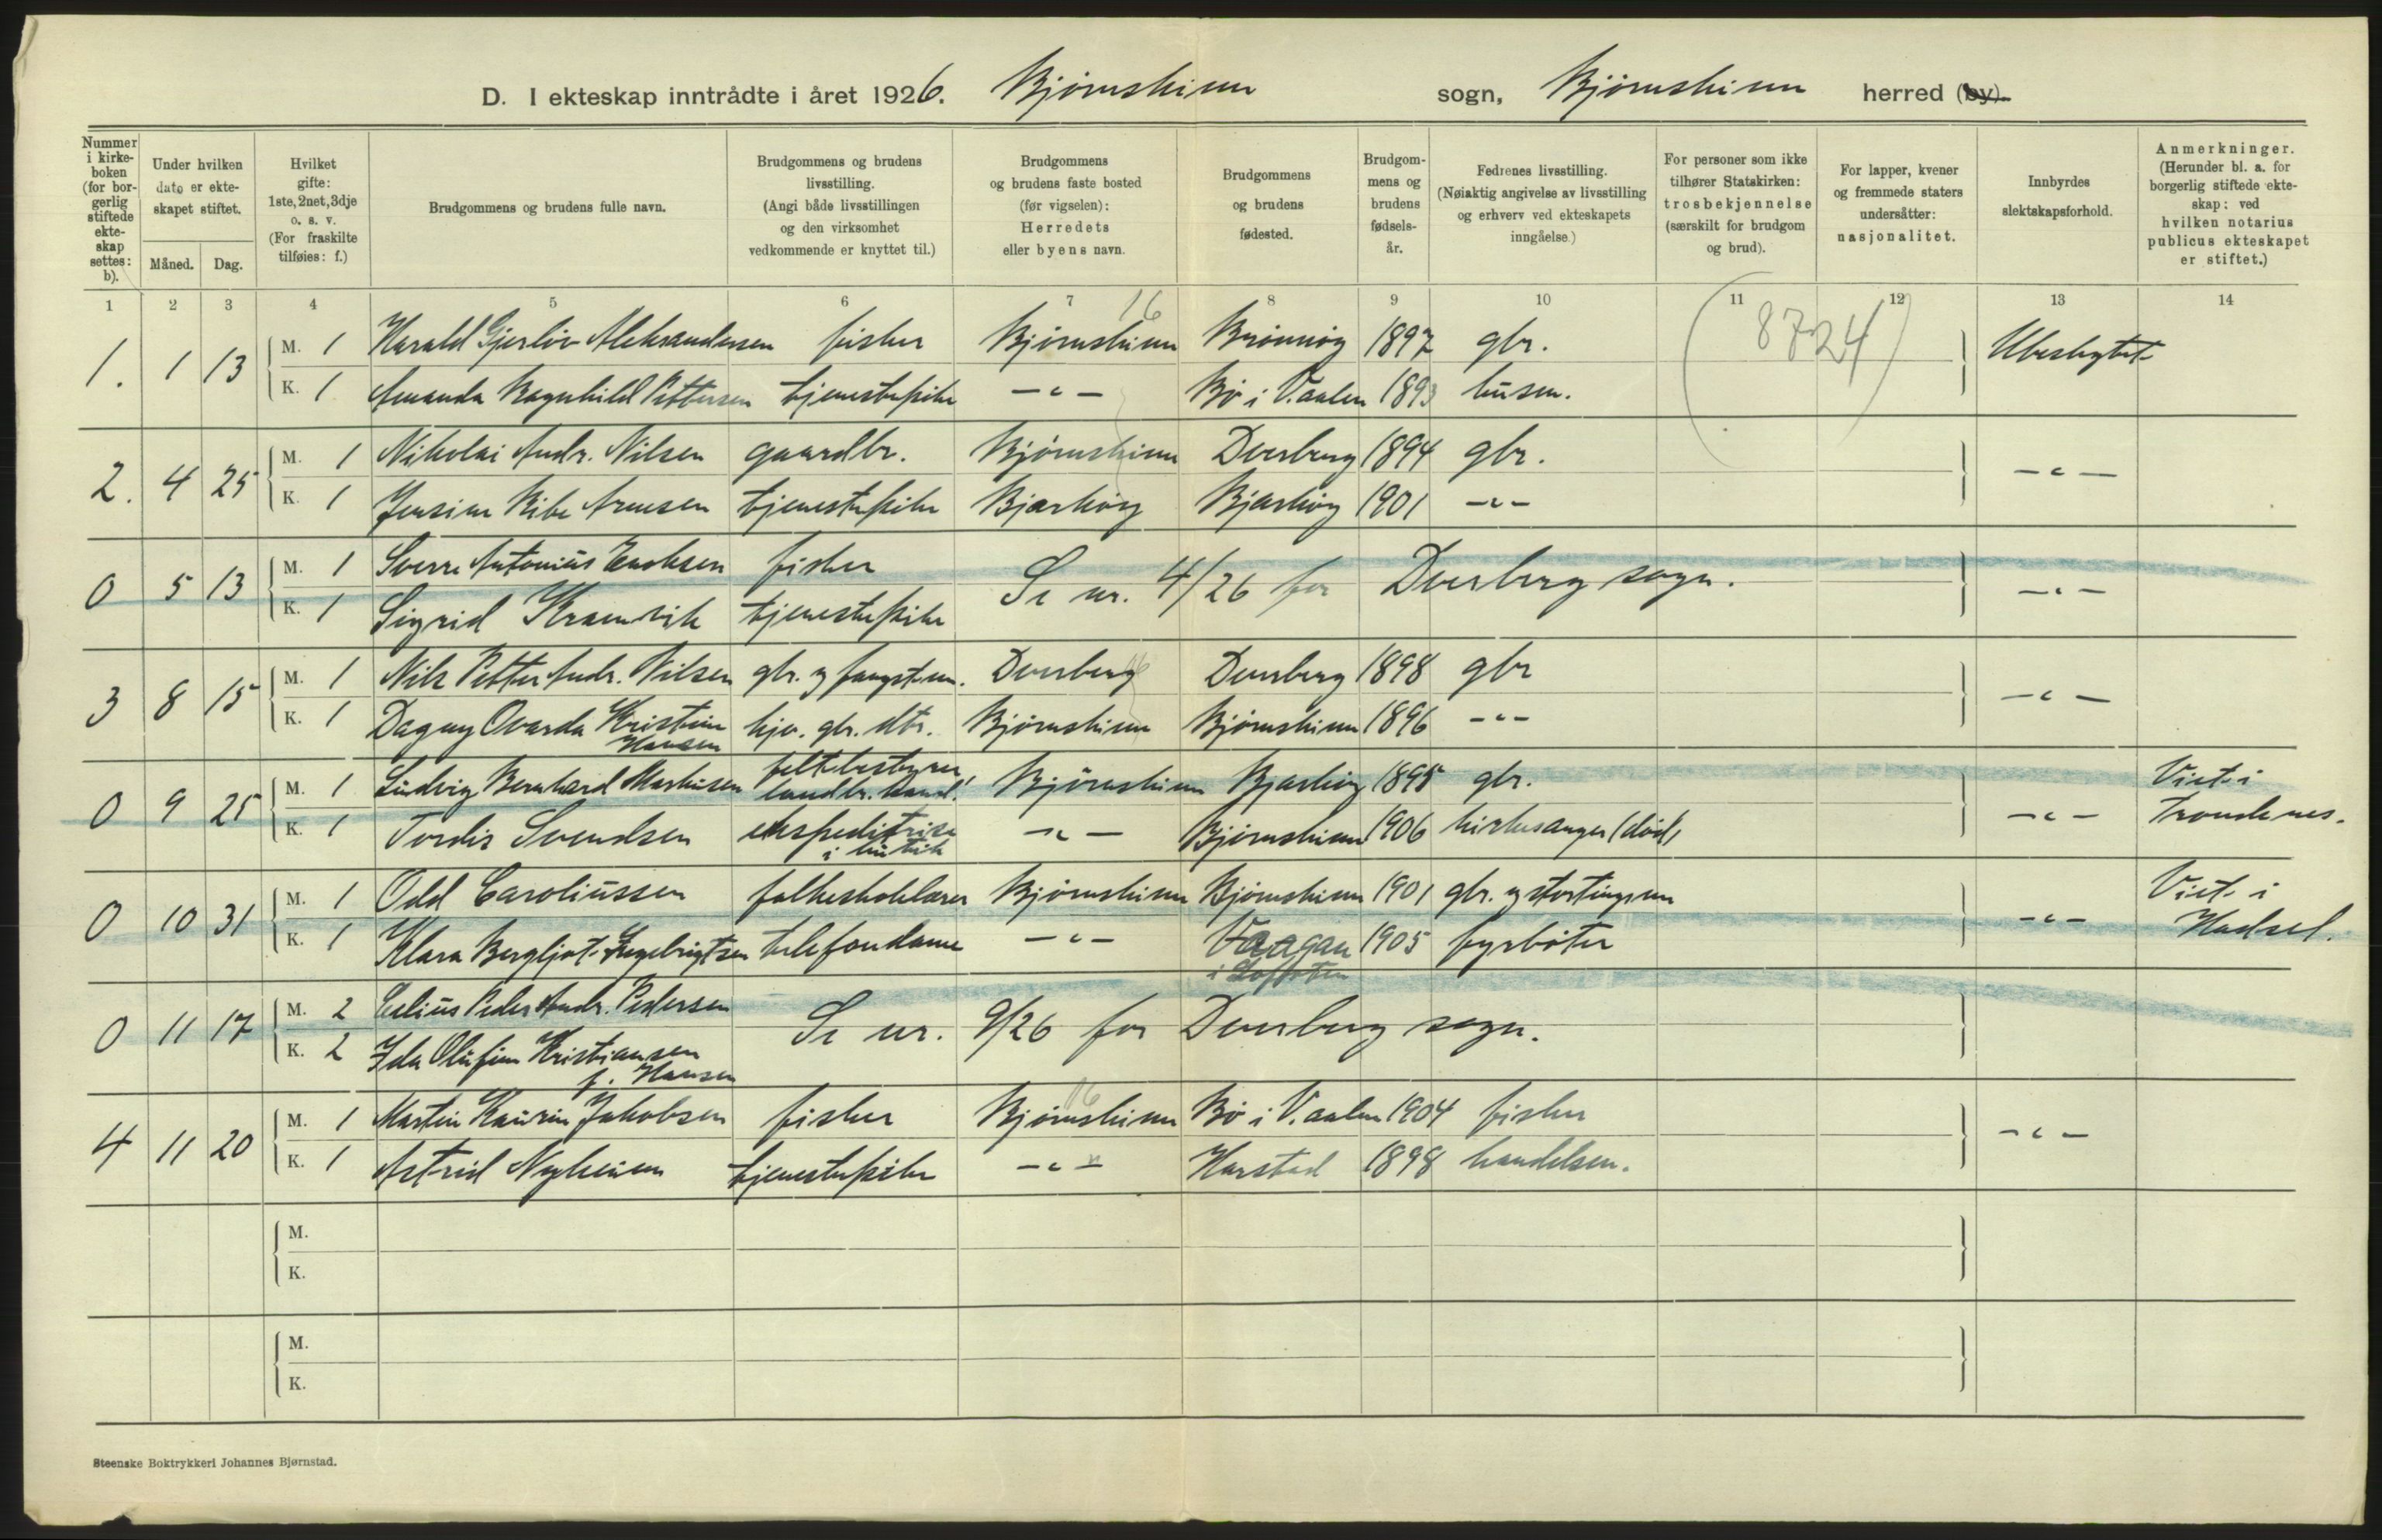 D. I ekteskap inntrådte i året 1926. Bjørnskinn sogn, Bjørnskinn herred (by).
Nummer i kirke-boken (for bor-gerlig stiftede ekte-skap settes: b).
Under hvilken dato er ekte-skapet stiftet.
Måned. Dag.
Hvilket gifte: 1ste, 2net, 3dje o. s. v. (For fraskilte tilføies: f.)
Brudgommens og brudens fulle navn.
Brudgommens og brudens livsstilling. (Angi både livsstillingen og den virksomhet vedkommende er knyttet til.)
Brudgommens og brudens faste bosted (før vigselen): Herredets eller byens navn.
Brudgommens og brudens fødested.
Brudgom-mens og brudens fødsels-år.
Fedrenes livsstilling. (Nøiaktig angivelse av livsstilling og erhverv ved ekteskapets inngåelse.)
For personer som ikke tilhører Statskirken: trosbekjennelse (særskilt for brudgom og brud).
For lapper, kvener og fremmede staters undersåtter: nasjonalitet.
Innbyrdes slektskapsforhold.
Anmerkninger. (Herunder bl. a. for borgerlig stiftede ekte-skap: ved hvilken notarius publicus ekteskapet er stiftet.)
1 2 3 4 5 6 7 8 9 10 11 12 13 14
16 (8724)
1. 1 13 M. 1 Harald Gjerløv Aleksandersen fisker Bjørnskinn Brønnøy 1897 gbr. Ubeslegtet
K. 1 Amanda Ragnhild Pettersen tjenestepike -"- Bø i V.aalen 1893 husm.
2. 4 25 M. 1 Nikolai Andr. Nilsen gaardbr. Bjørnskinn Dverberg 1894 gbr. -"-
K. 1 Jensine Ribe Arnesen tjenestepike Bjarkøy Bjarkøy 1901 -"-
0 5 13 M. 1 Sverre Antonius Enoksen fisker Se nr. 4/26 for Dverberg sogn. -"-
K. 1 Sigrid Kramvik tjenestepike
3 8 15 M. 1 Nils Petter Andr. Nilsen gbr. og fangstm. Dverberg Dverberg 1898 gbr -"-
K. 1 Dagny Ovarda Kristine Hansen hjv. gbr. dtr. Bjørnskinn Bjørnskinn 1896 -"-
0 9 25 M. 1 Ludvig Bernhard Markusen feltbestyrer, landbr. kand. Bjørnskinn Bjarkøy 1895 gbr. -"- Viet i Trondenes.
K. 1 Tordis Svendsen ekspeditrise i butik -"- Bjørnskinn 1906 kirkesanger (død)
0 10 31 M. 1 Odd Caroliussen folkeskolelærer Bjørnskinn Bjørnskinn 1901 gbr. og stortingsm -"- Viet i Hadsel.
K. 1 Klara Bergljot Ingebrigtsen telefondame -"- Vaagan i Lofoten 1905 fyrbøter
0 11 17 M. 2 Celius Peder Andr. Pedersen Se nr. 9/26 for Dverberg sogn.
K. 2 Ida Olufine Kristiansen f. Hansen
4 11 20 M. 1 Martin Kaurin Jakobsen fisker Bjørnskinn Bø i V.aalen 1904 fisker -"-
K. 1 Astrid Nyheim tjenestepike -"- Harstad 1898 handelsm.
M.
K.
M.
K.
Steenske Boktrykkeri Johannes Bjørnstad.